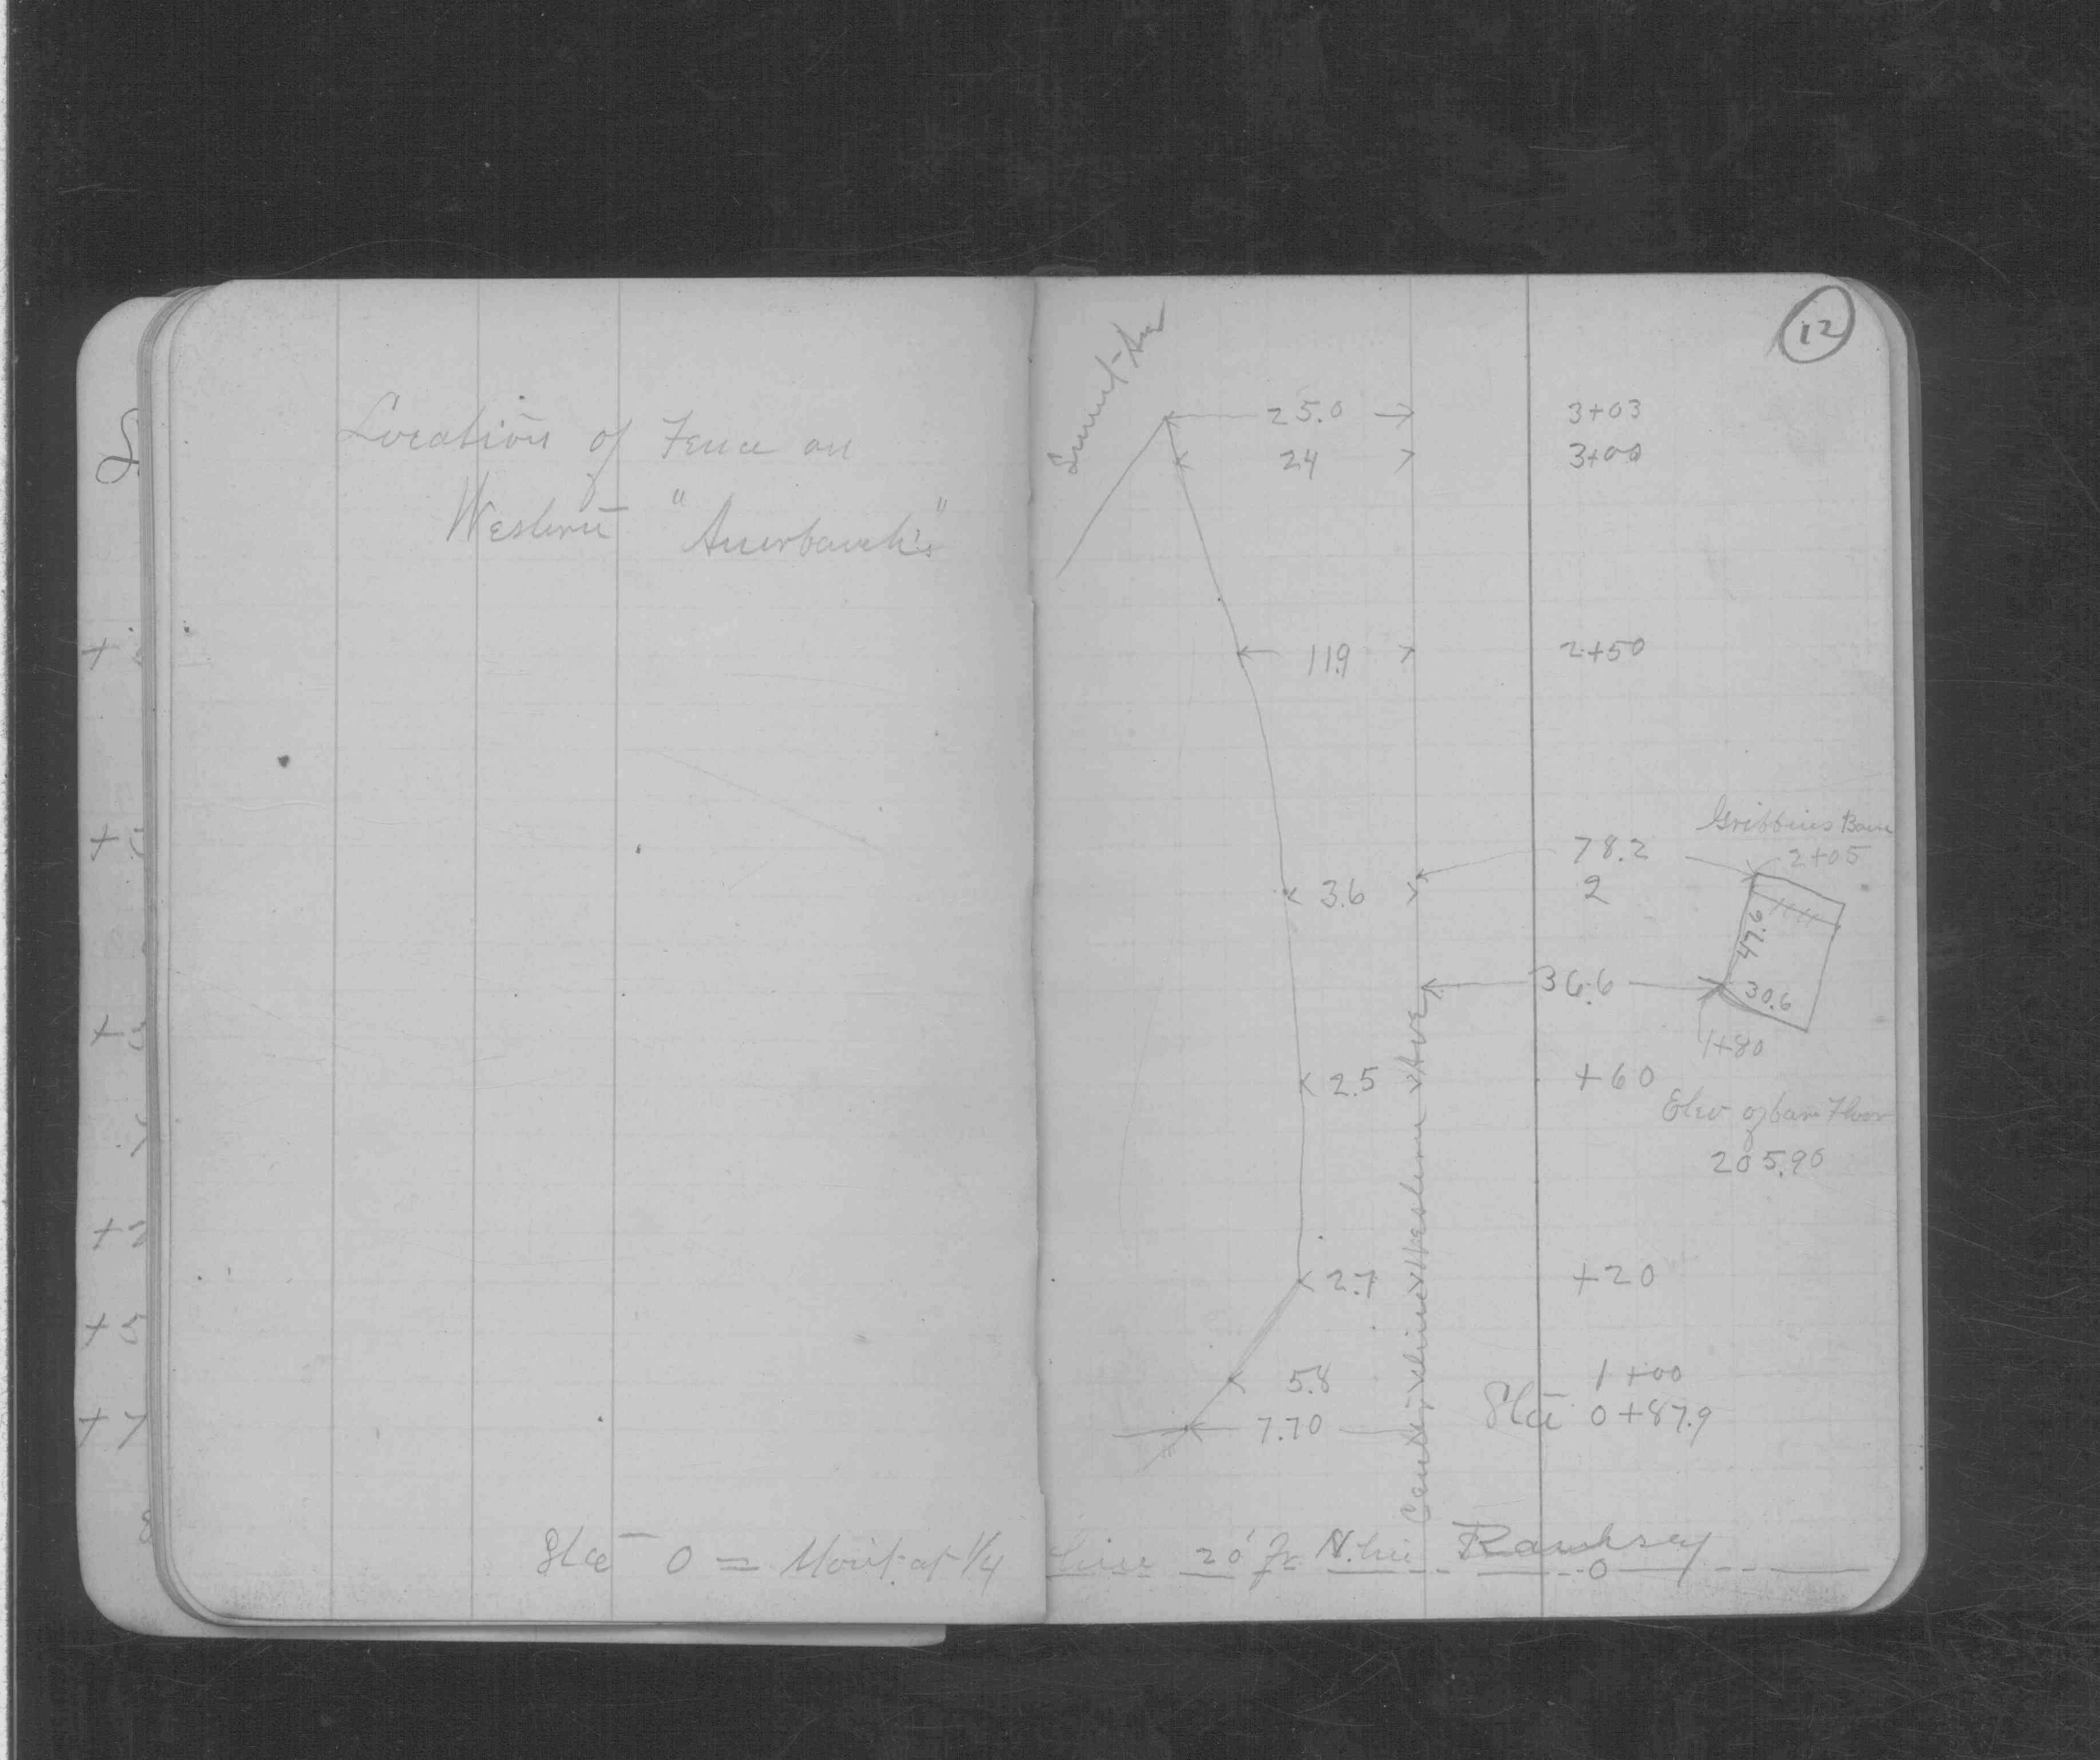 12
Location of Fence on
Western "Auerbach's"
Summit Ave
25.0 3+03
24 3+00
11.9 2+50
Gribbins Barn
78.2 2+05
3.6 2
47.6
36.6 30.6
1+80
2.5 +60
Elev of barn Floor
205.90
2.7 +20
5.8 1+00
7.70 Sta 0+87.9
Center line Western Ave
Sta 0 = Mon't at 1/4 line 20' fr N. line Ramsey
0
+
+
+
+2
+5
+7
8